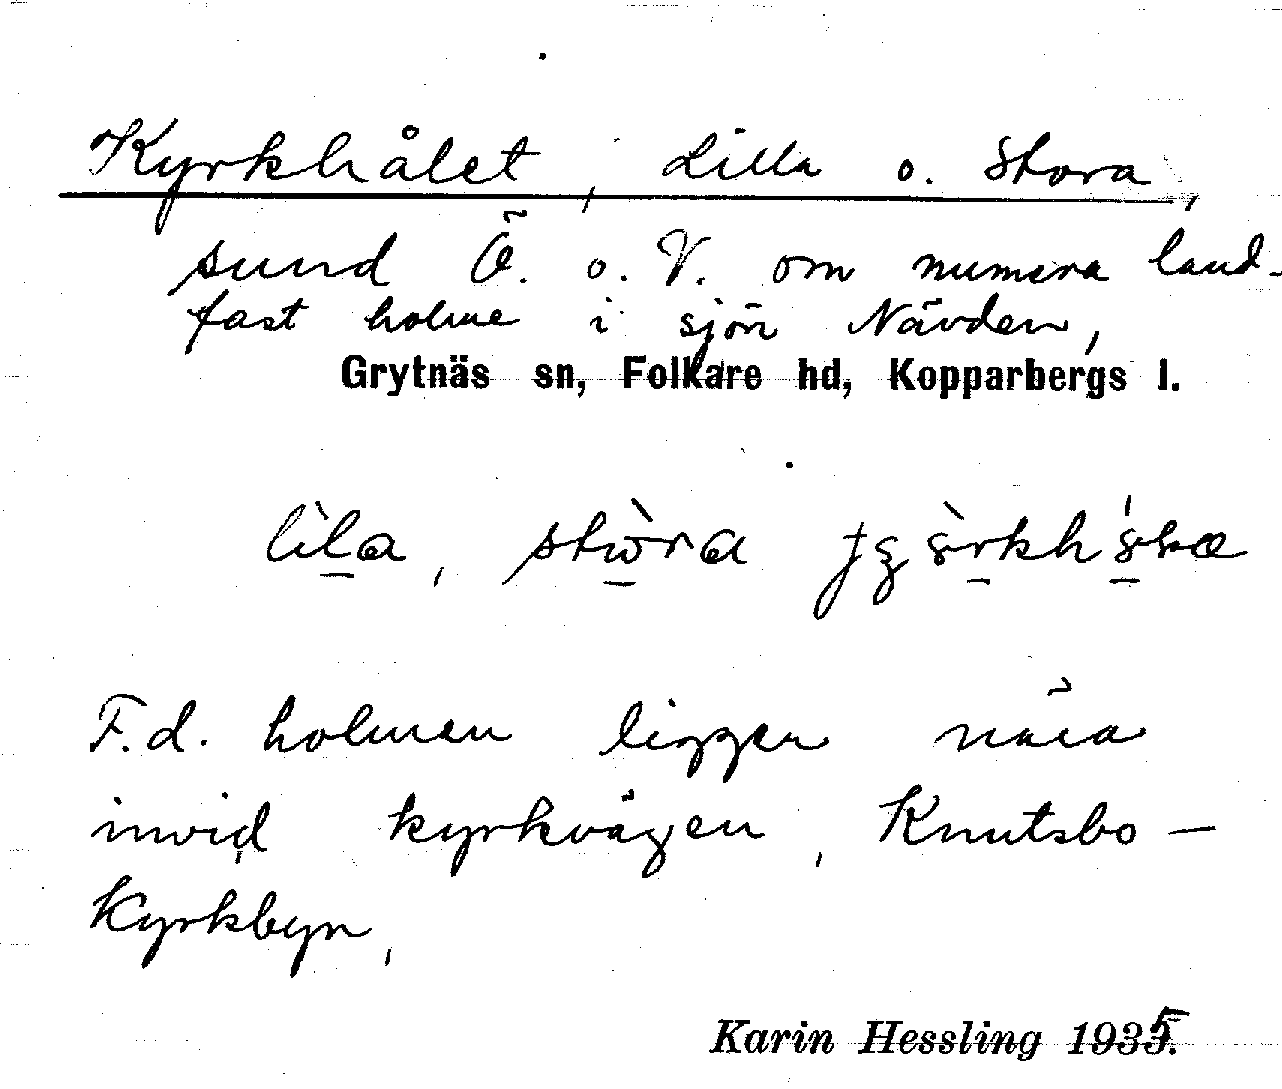 Kyrkhålet, Lilla o. Stora,
sund Ö. o. V. om numera land-
fast holme i sjön Nävden,
Grytnäs sn, Folkare hd, Kopparbergs l.
F.d. holmen ligger nära
invid kyrkvägen, Knutsbo –
Kyrkbyn.
Karin Hessling 1935.